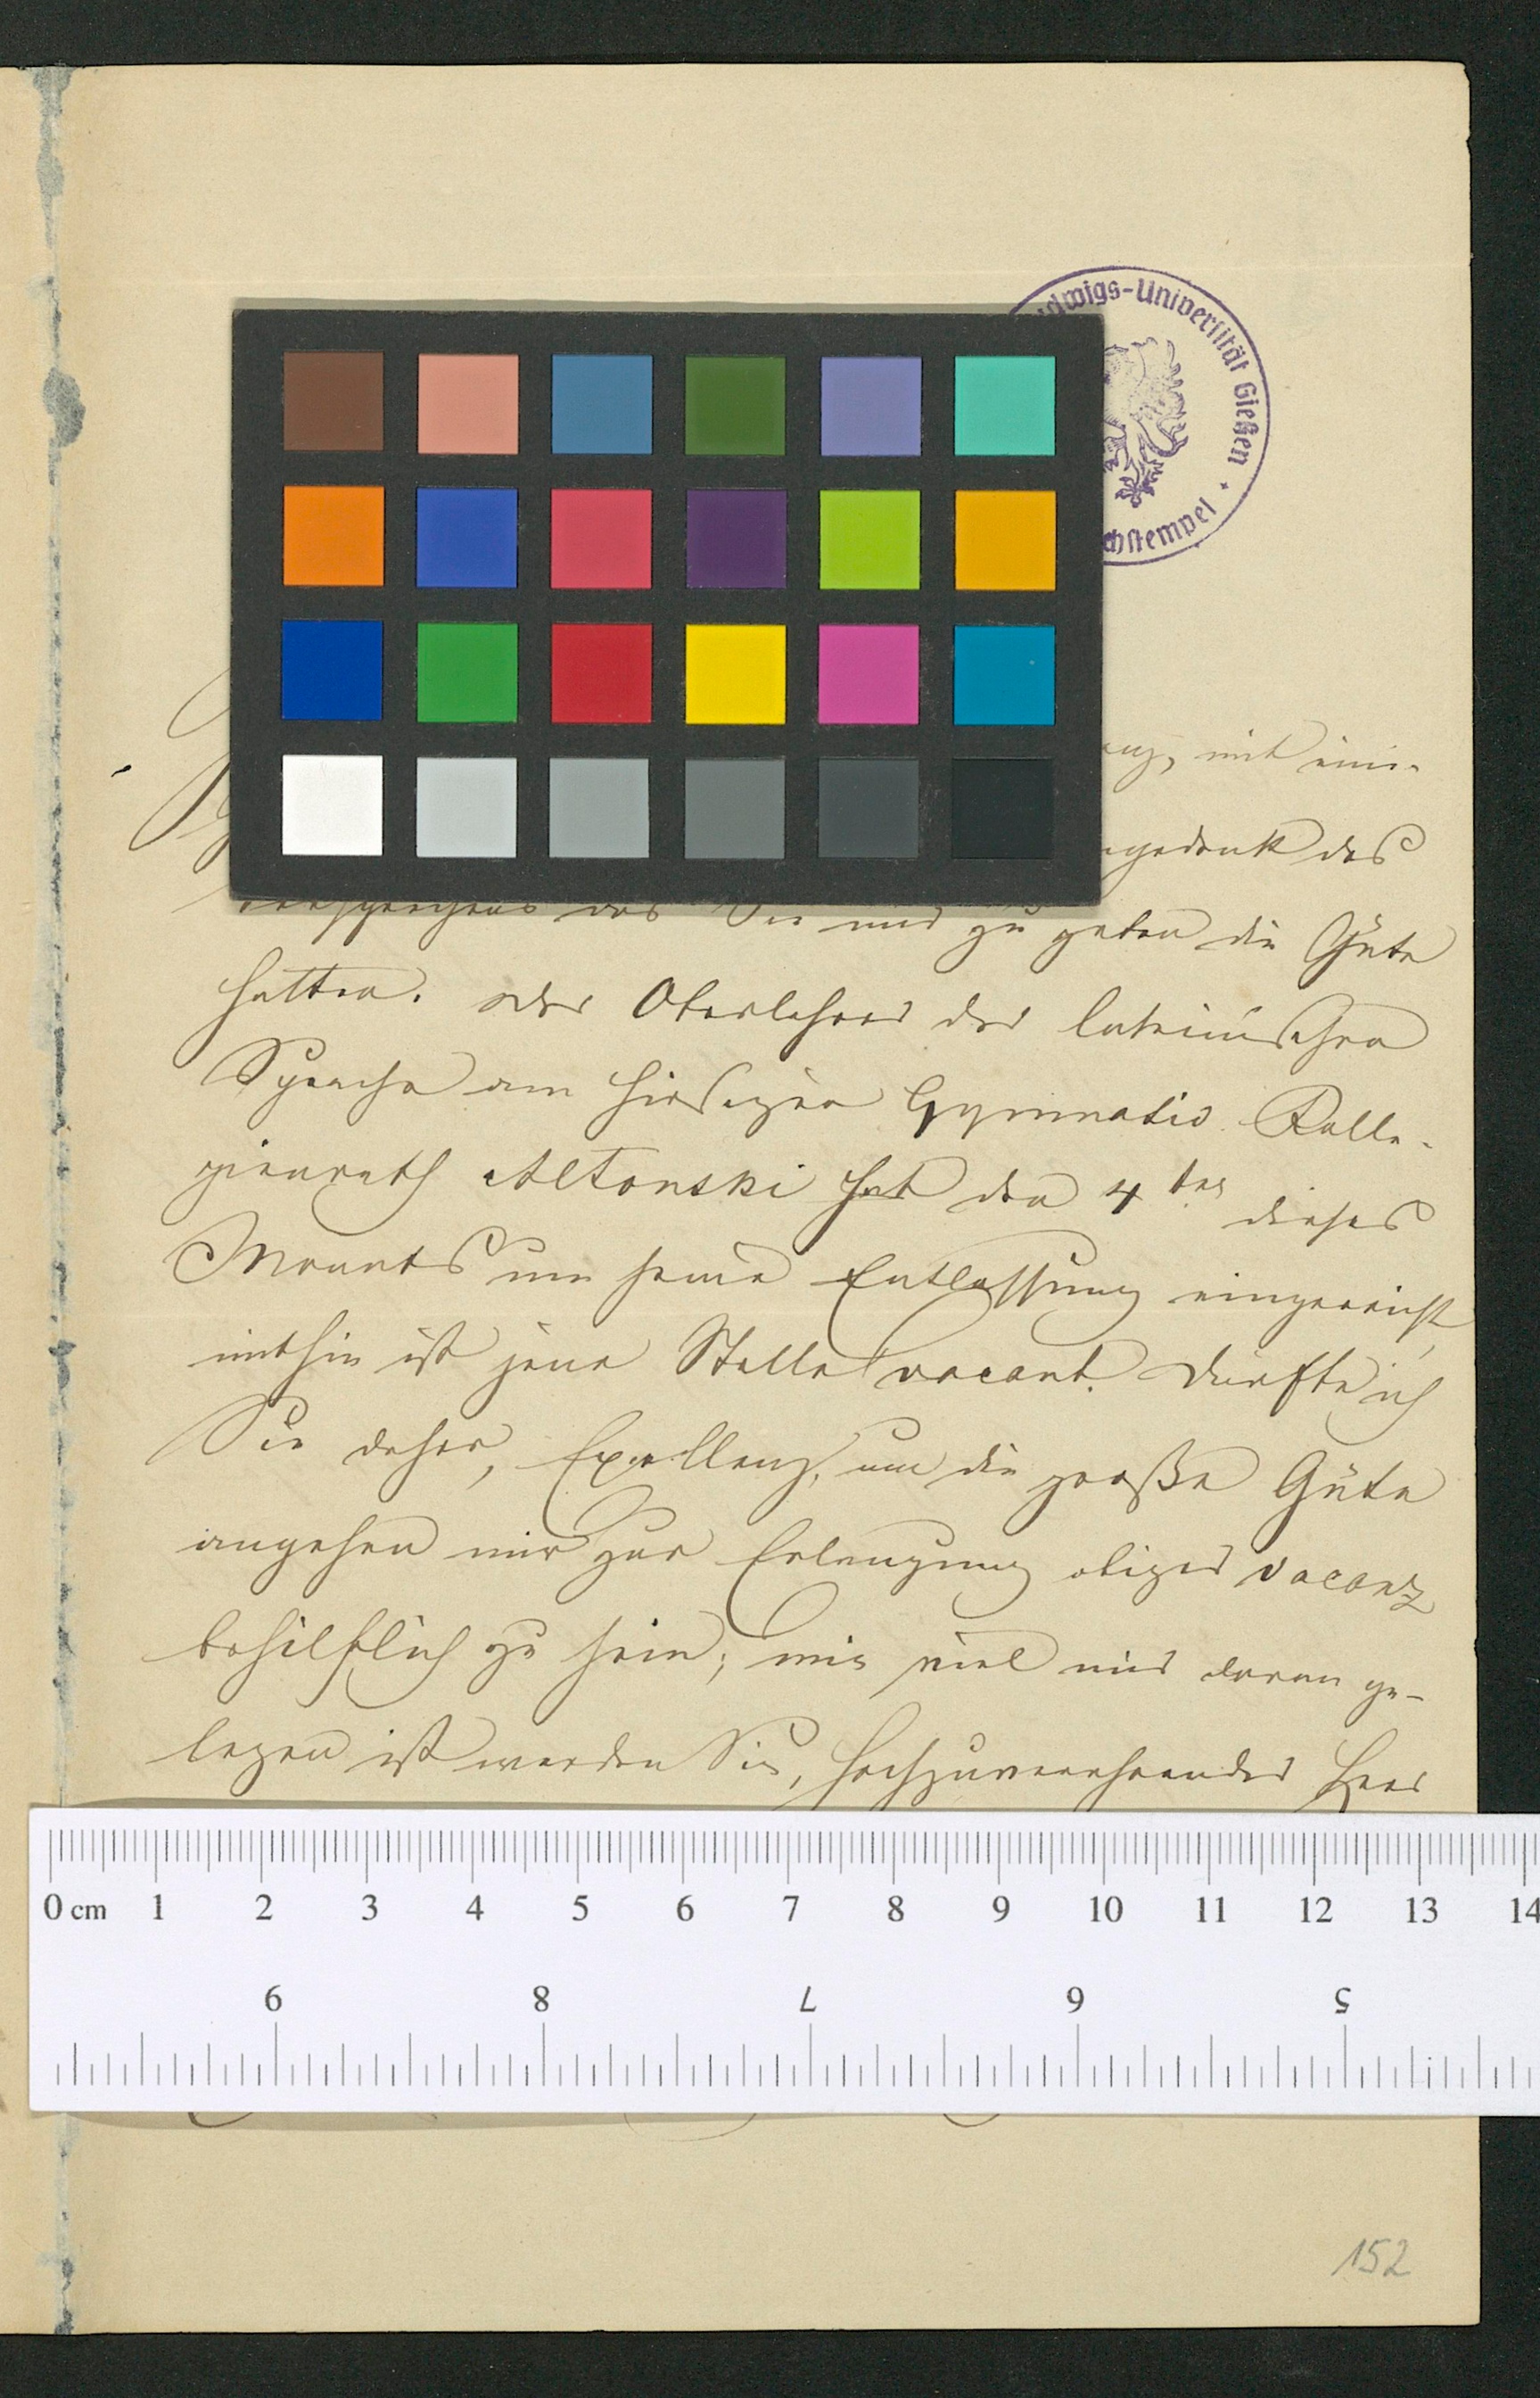 dwigs-Universität Gießen
chstempel
mit eini-
ngedenk des
Versprechens das Sie mir zu geben die Güte
hatten. Der Oberlehrer der lateinischen
Sprache am hiesigen Gymnasio Kolle-
gienrath Altonski hat den 4ten dieses
Monats um seine Entlassung eingereicht,
mithin ist jene Stelle vacant. Dürfte ich
Sie daher, Exellenz, um die große Güte
angehen mir zur Erlangung obiger vacanz
behilflich zu sein; wie viel mir daran ge-
legen ist werden Sie, hochzuverehrender Herr
0 cm 1 2 3 4 5 6 7 8 9 10 11 12 13 14
9 8 7 6 5
152